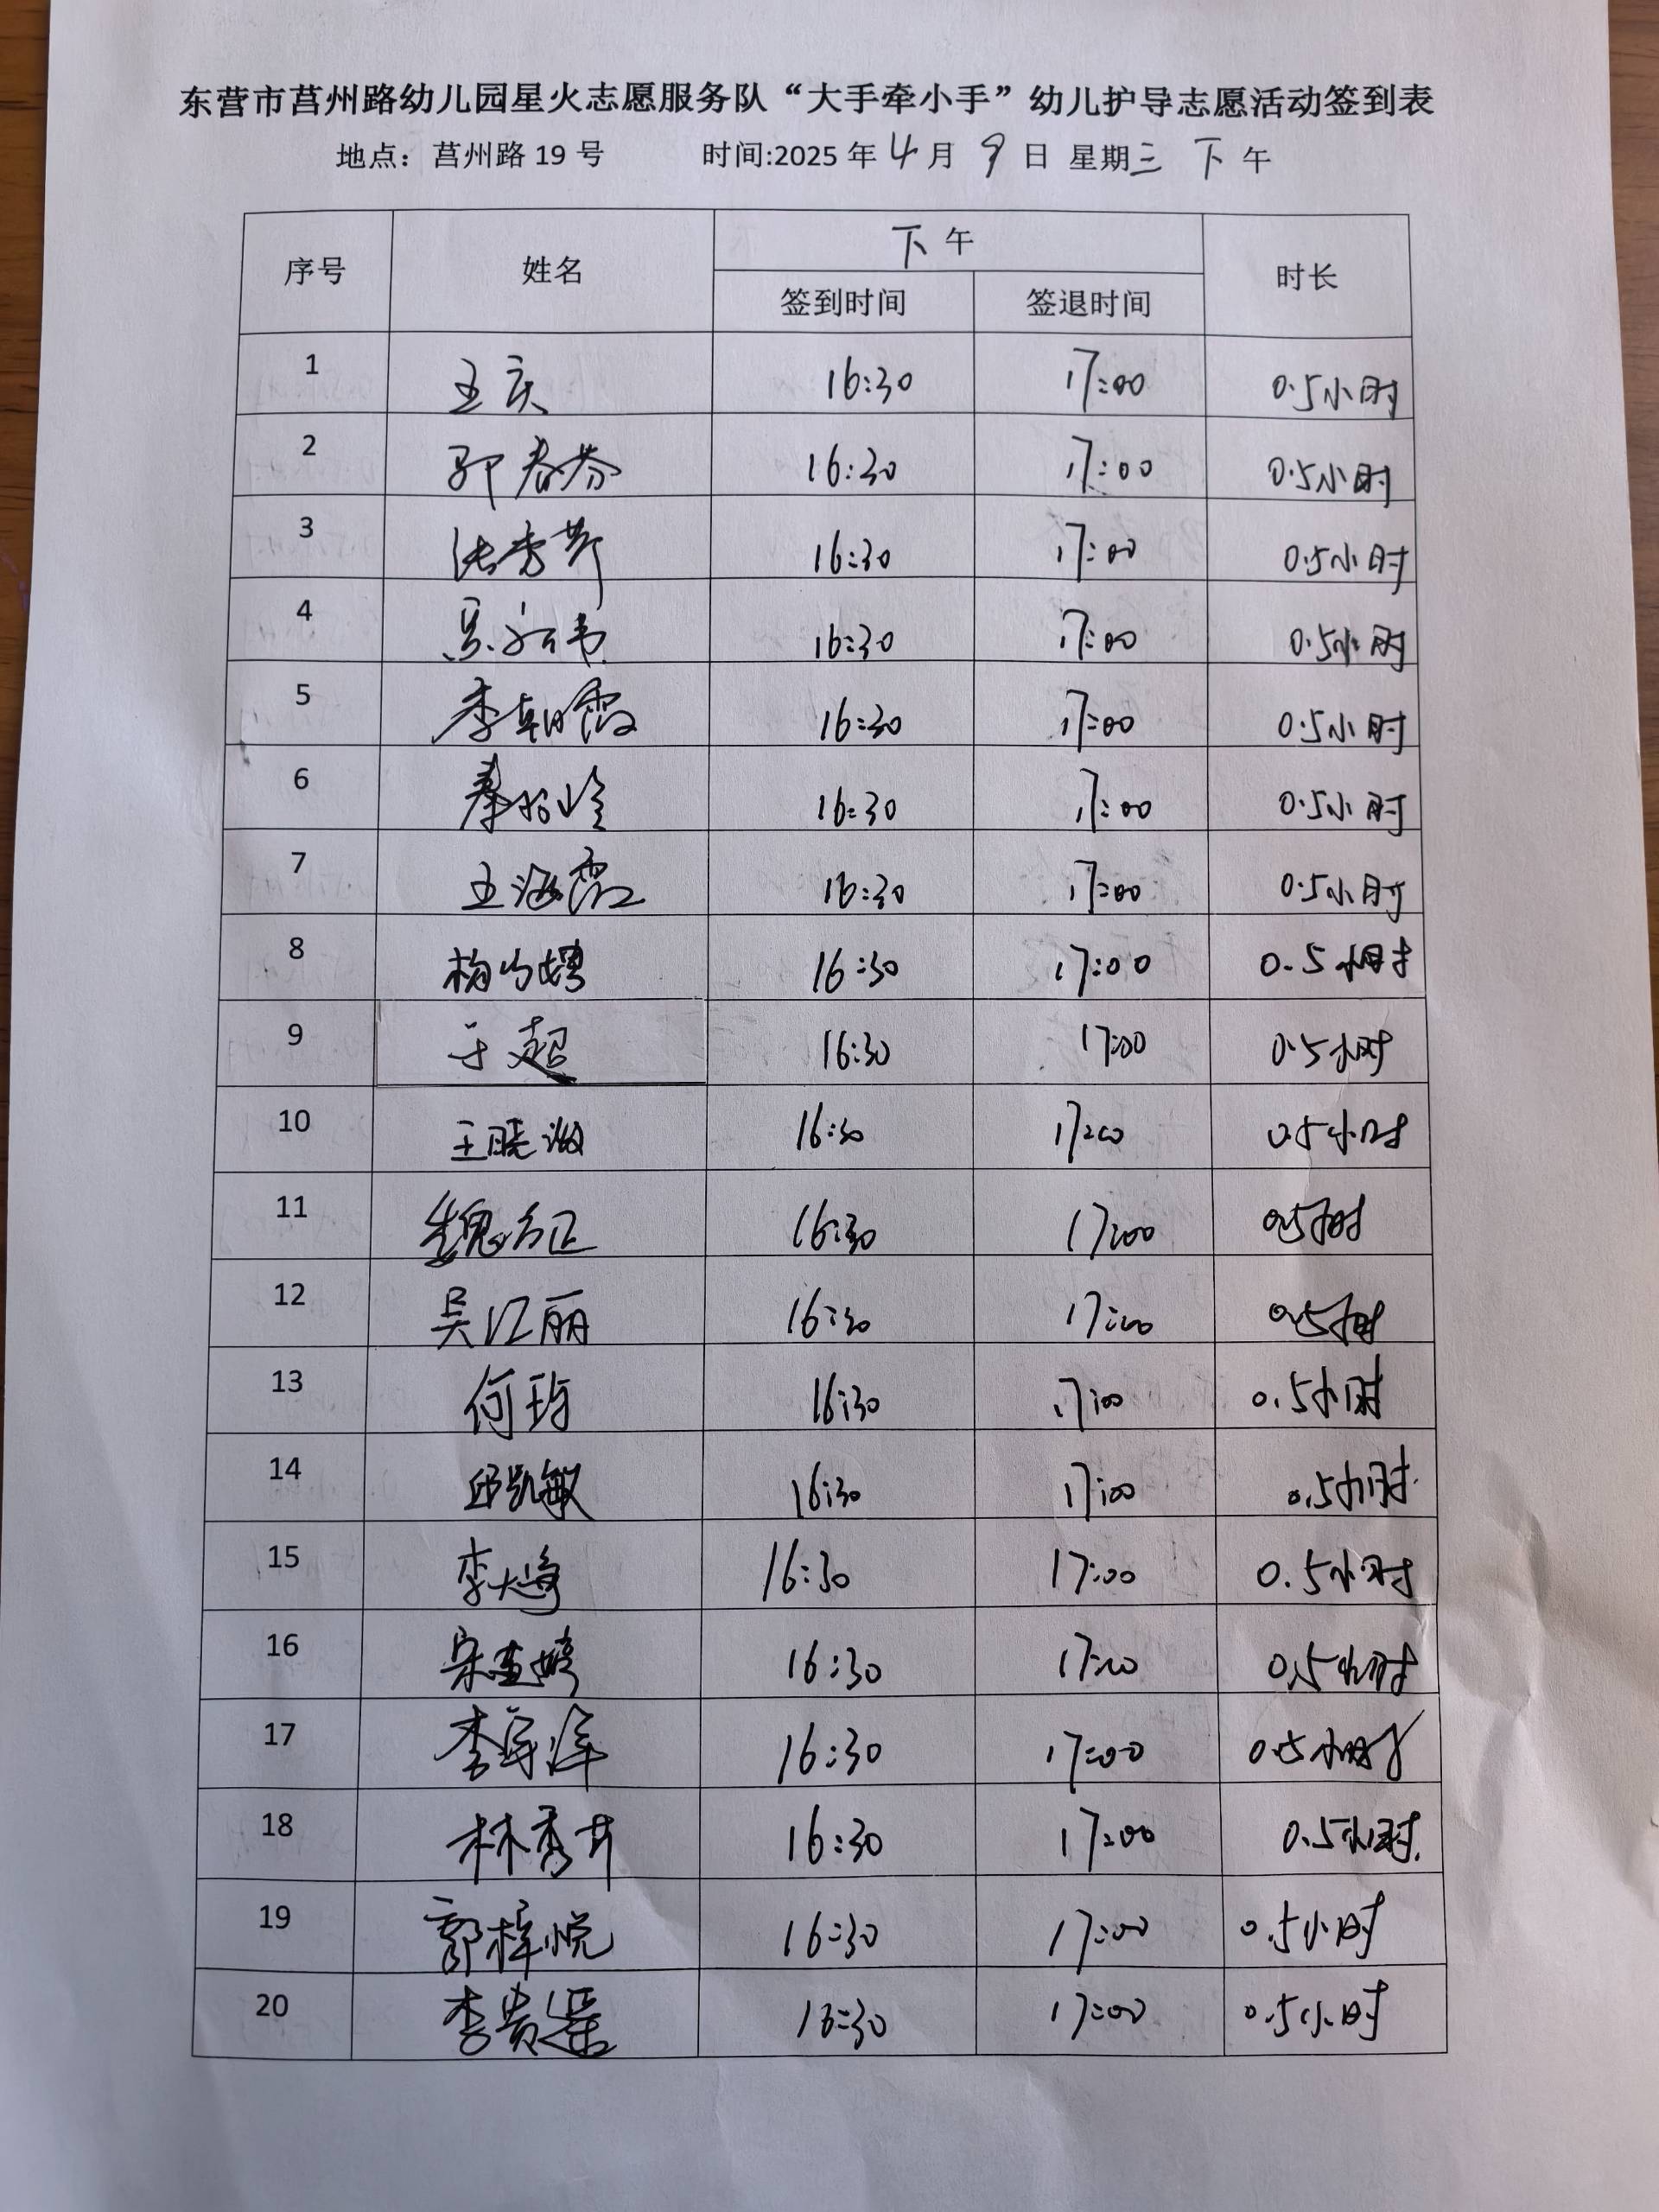 东营市莒州路幼儿园星火志愿服务队“大手牵小手”幼儿护导志愿活动签到表
地点：莒州路 19 号 时间:2025 年 4 月 9 日 星期三 下午
序号 姓名 下午 时长
签到时间 签退时间
1 王庆 16:30 17:00 0.5小时
2 郭春芬 16:30 17:00 0.5小时
3 张秀芹 16:30 17:00 0.5小时
4 16:30 17:00 0.5小时
5 李朝霞 16:30 17:00 0.5小时
6 秦 16:30 17:00 0.5小时
7 王海霞 16:30 17:00 0.5小时
8 杨 16:30 17:00 0.5小时
9 于超 16:30 17:00 0.5小时
10 王晓 16:30 17:00 0.5小时
11 魏方正 16:30 17:00 0.5小时
12 吴江丽 16:30 17:00 0.5小时
13 何玥 16:30 17:00 0.5小时
14 邱凯敏 16:30 17:00 0.5小时
15 李大海 16:30 17:00 0.5小时
16 宋孟婷 16:30 17:00 0.5小时
17 李 16:30 17:00 0.5小时
18 林秀井 16:30 17:00 0.5小时
19 郭梓悦 16:30 17:00 0.5小时
20 李贵 16:30 17:00 0.5小时